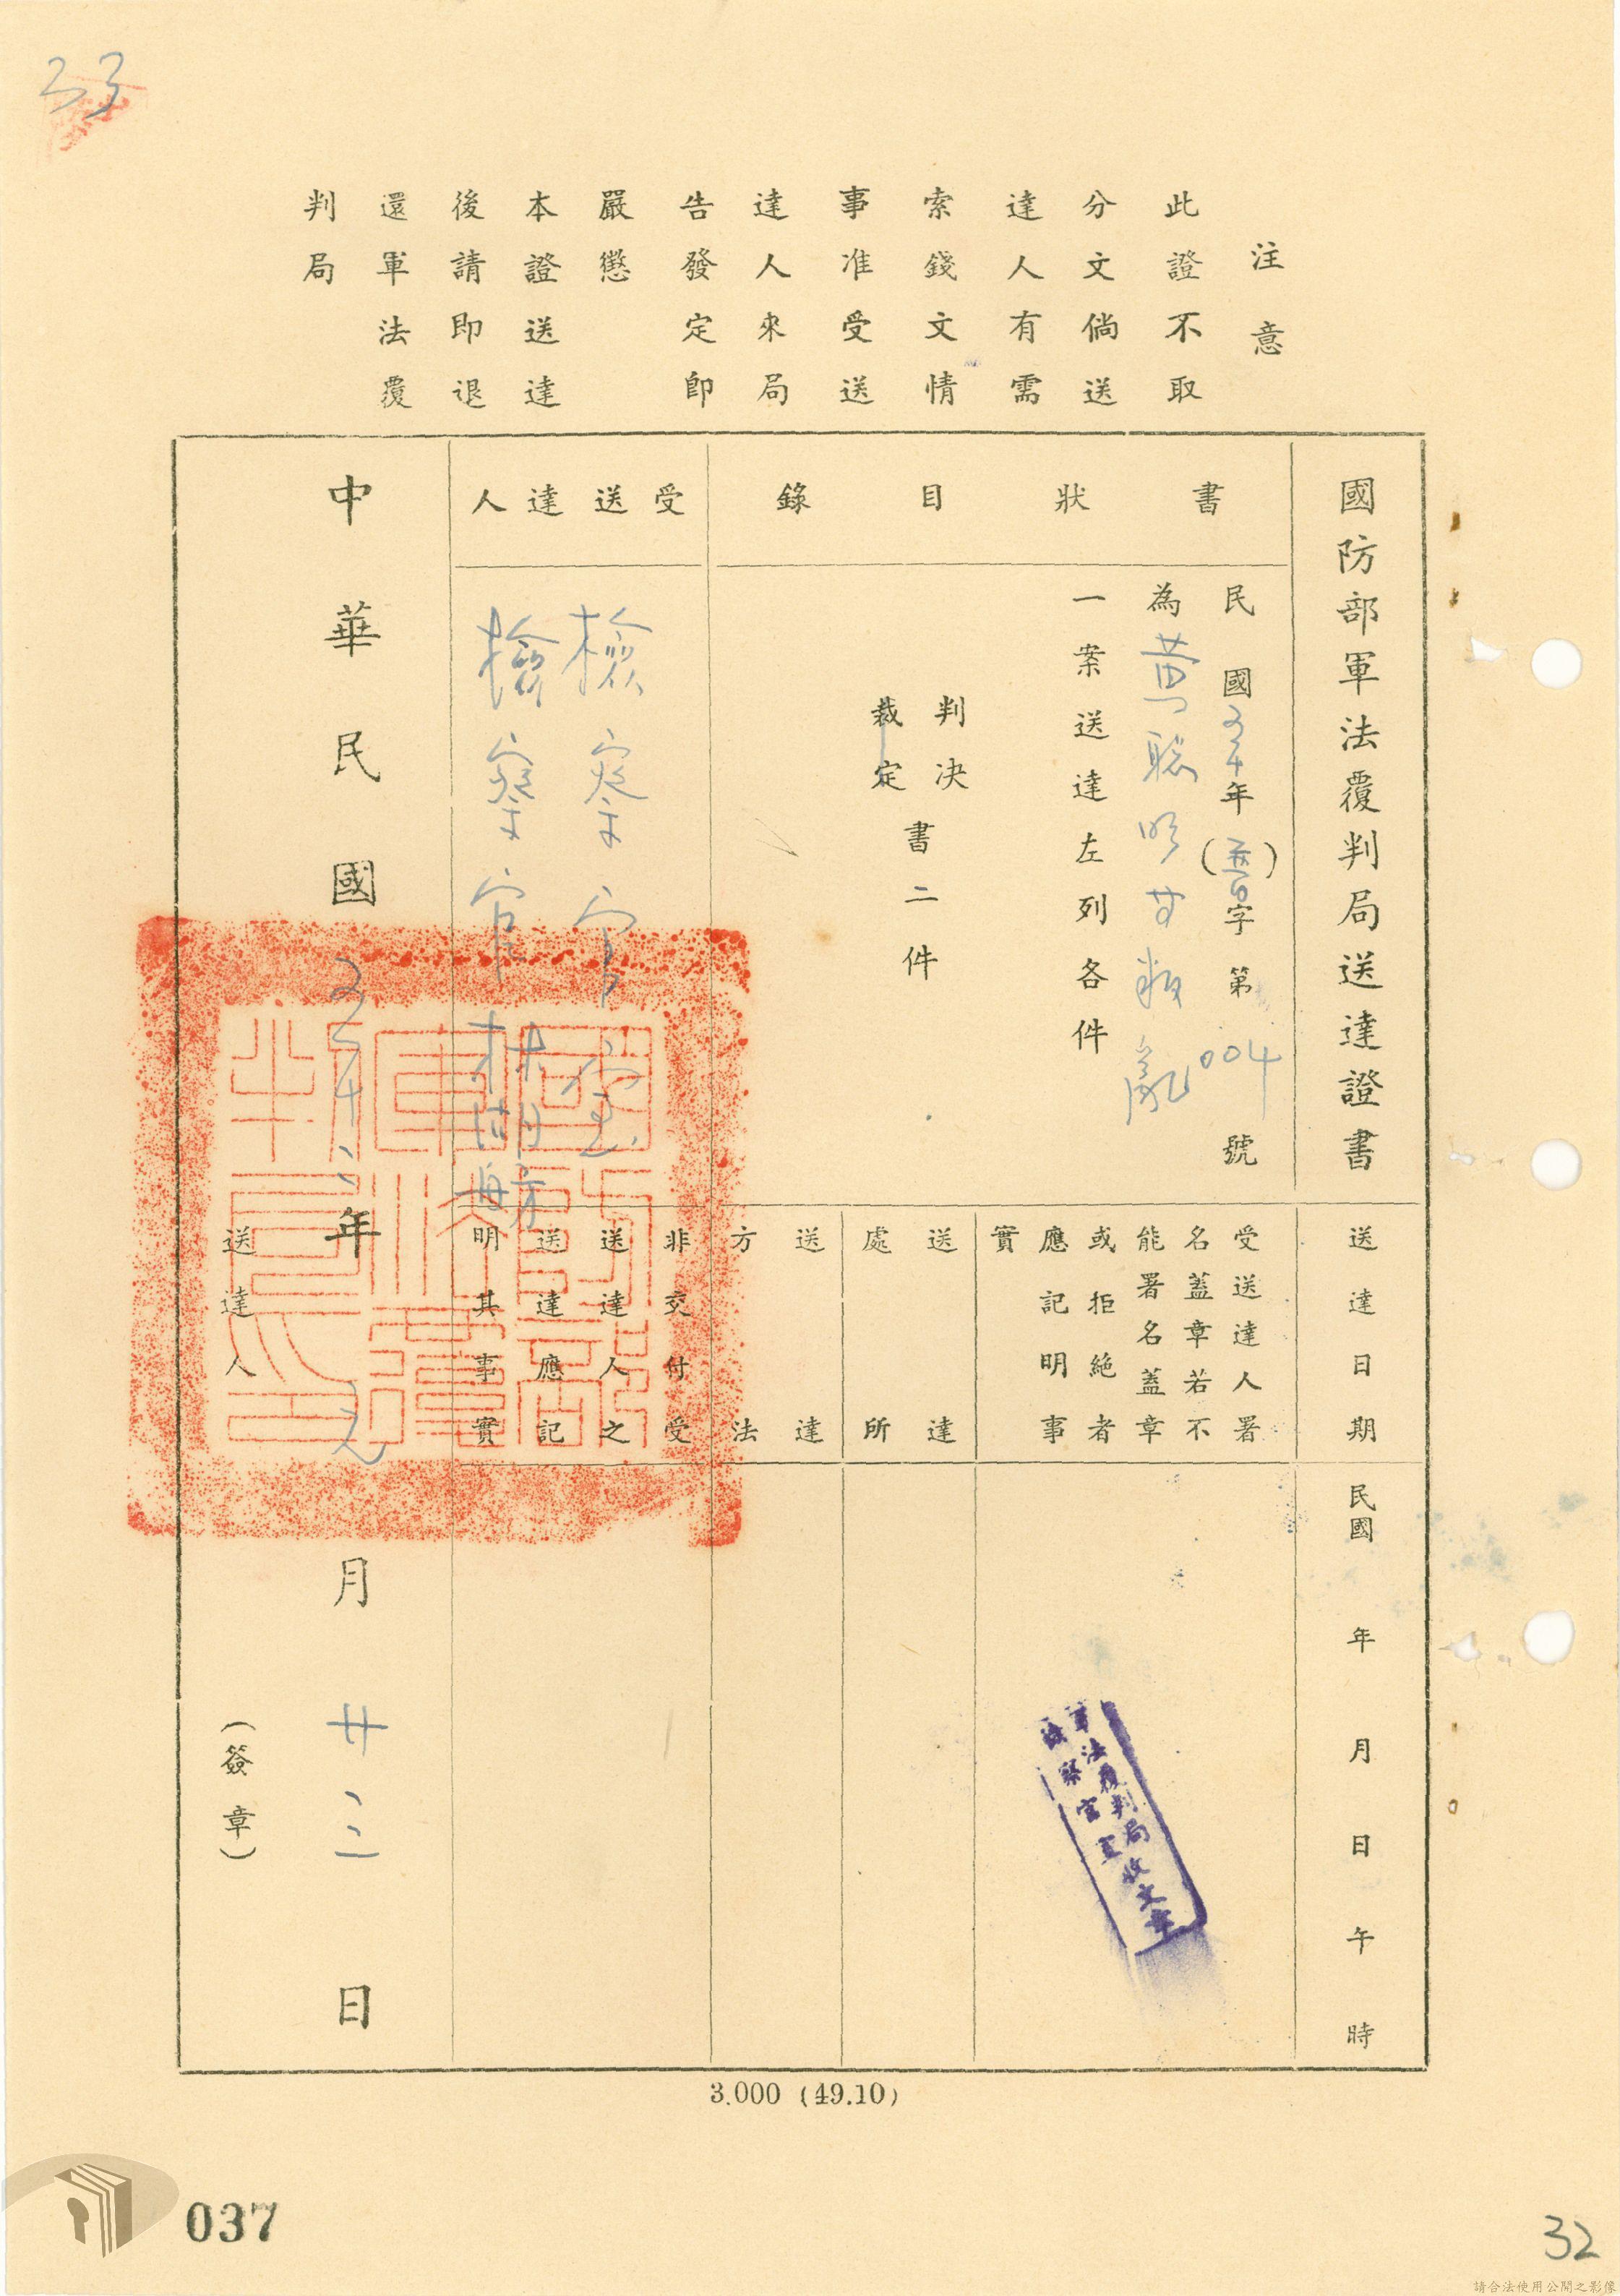 33
注意
此證不取
分文倘送
達人有需
索錢文情
事准受送
達人來局
告發定即
嚴懲
本證送達
後請即退
還軍法覆
判局
國防部軍法覆判局送達證書
書狀目錄
民國五十年(普)字第004號
為黃聰明等叛亂
一案送達左列各件
判決
裁定
書二件
受送達人
檢察官室
檢察官林
送達日期
民國 年 月 日 午 時
受送達人署
名蓋章若不
能署名蓋章
或拒絕者
應記明事
實
送達
處所
送達
方法
非交付受
送達人之
送達應記
明其事實
軍法覆判局收文章
檢察官室
中華民國五十二年元月廿二日
送達人 (簽章)
3.000 (49.10)
037
32
請合法使用公開之影像